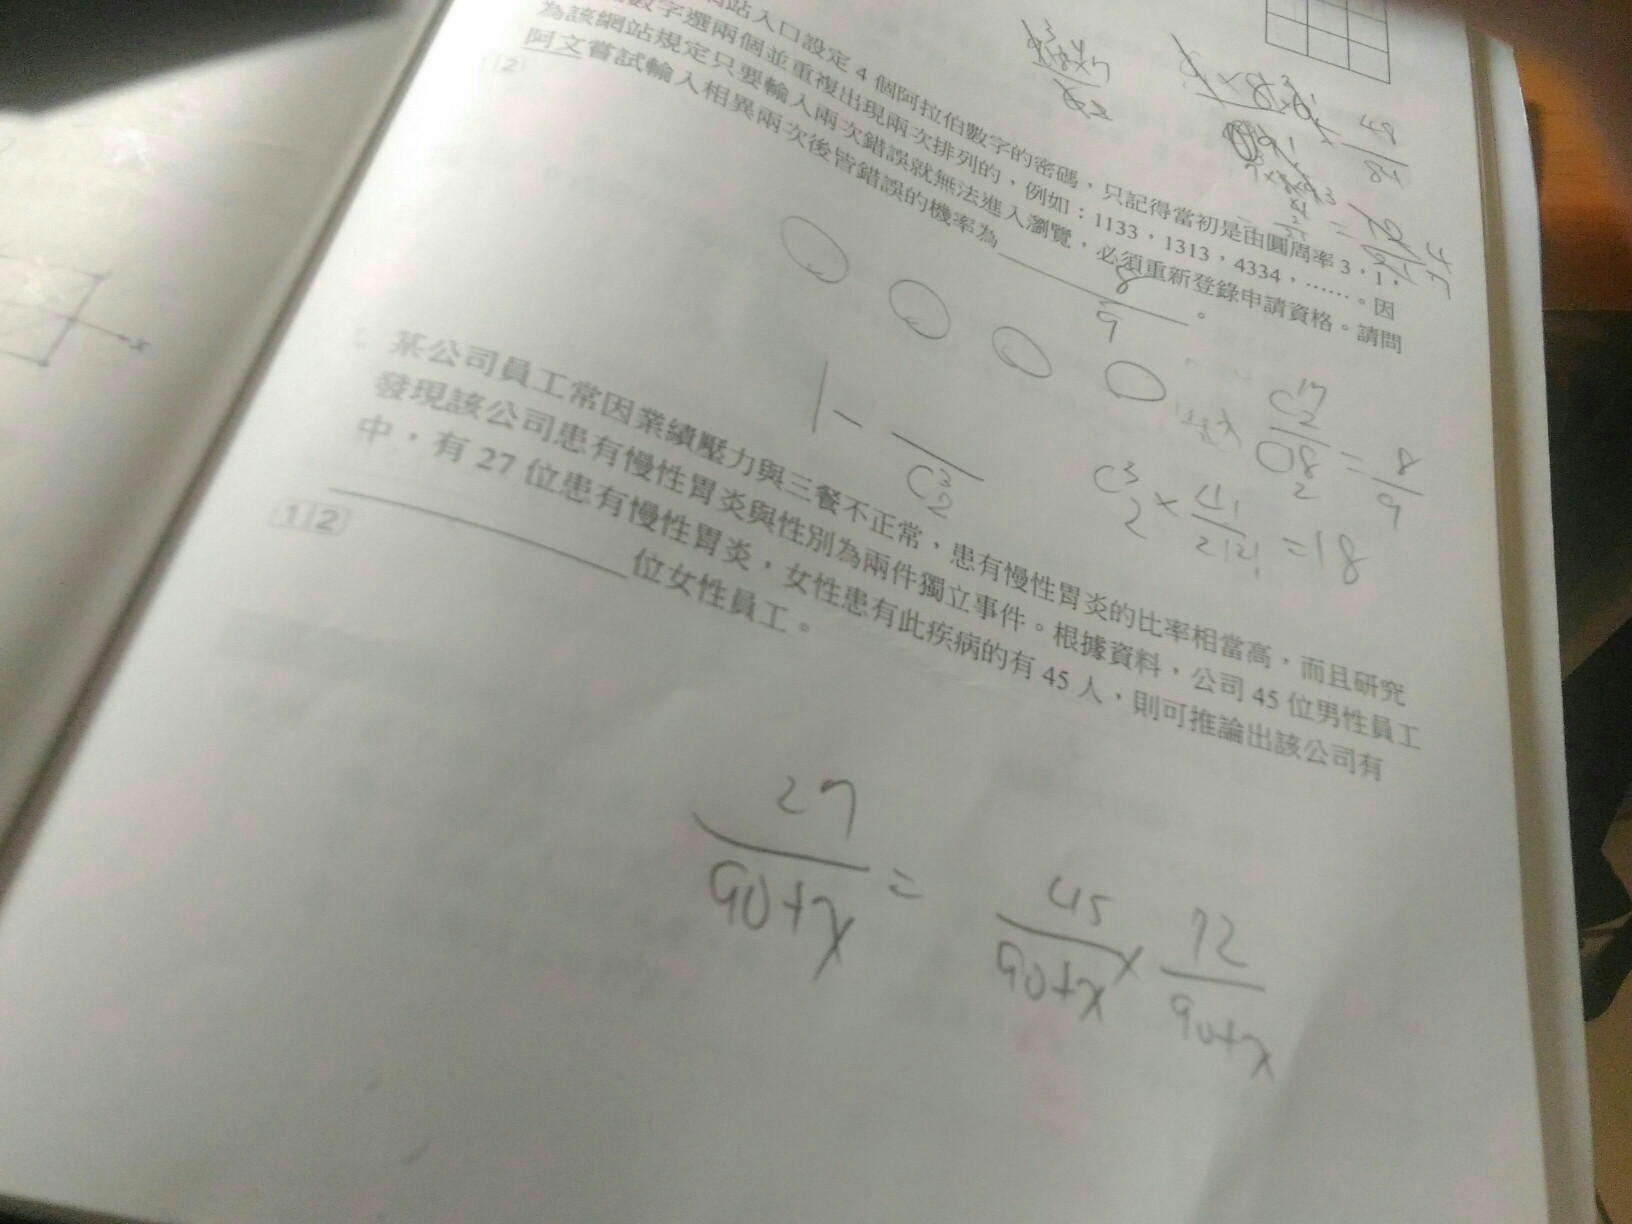 站入口設定 4 個阿拉伯數字的密碼，只記得當初是由圓周率 3，1，
數字選兩個並重複出現兩次排列的，例如：1133，1313，4334，……。因
為該網站規定只要輸入兩次錯誤就無法進入瀏覽，必須重新登錄申請資格。請問
阿文嘗試輸入相異兩次後皆錯誤的機率為 8/9 。
1 2
48/84
1 - /C³₂
C¹⁷₂ / C¹⁸₂ = 8/9
C³₂ × 4!/2!2! = 18
某公司員工常因業績壓力與三餐不正常，患有慢性胃炎的比率相當高，而且研究
發現該公司患有慢性胃炎與性別為兩件獨立事件。根據資料，公司 45 位男性員工
中，有 27 位患有慢性胃炎，女性患有此疾病的有 45 人，則可推論出該公司有
位女性員工。
1 2
27/90+x = 45/90+x × 72/90+x